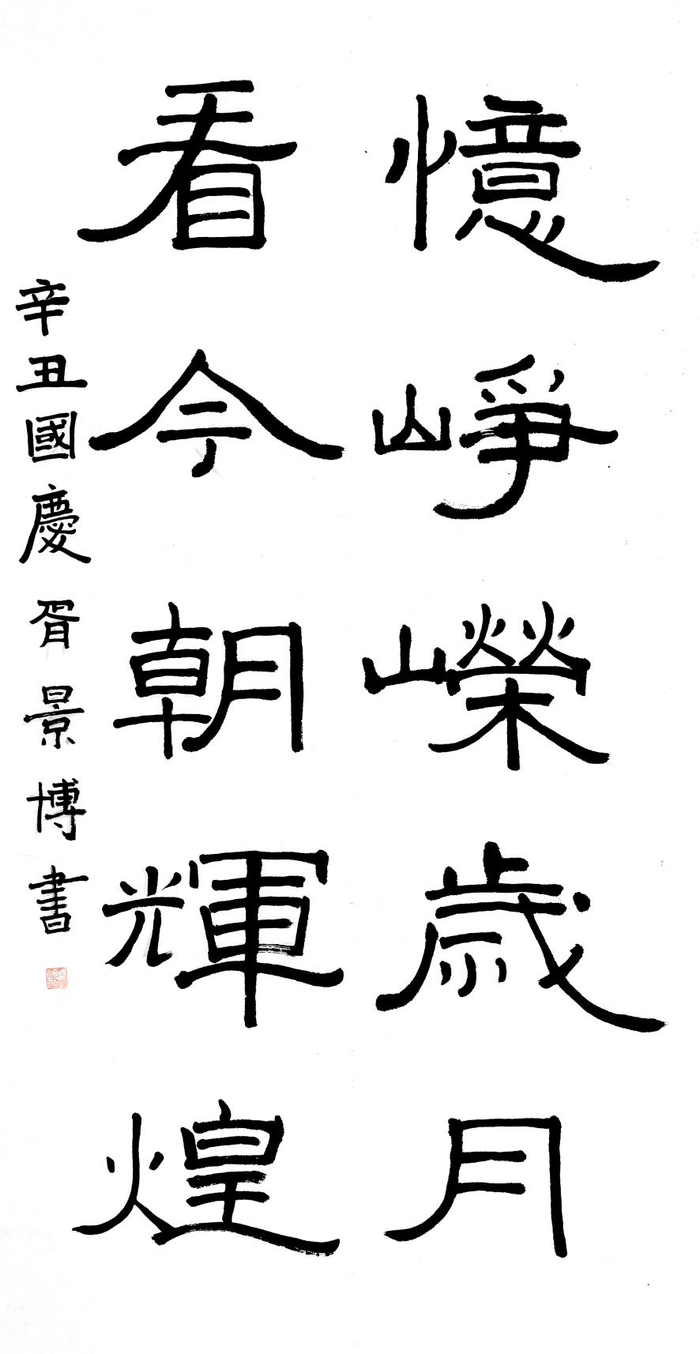 憶崢嶸歲月
看今朝輝煌
辛丑國慶胥景博書